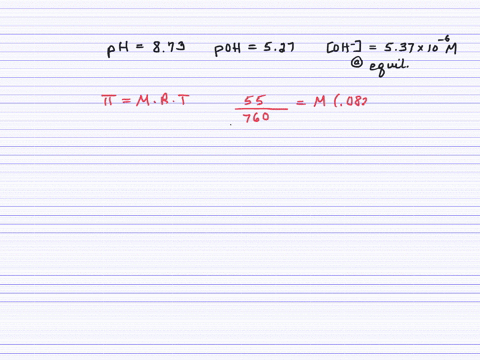 pH = 8.73 pOH = 5.27 [OH⁻] = 5.37 × 10⁻⁶ M
@ equil.
π = M.R.T 55/760 = M (.082